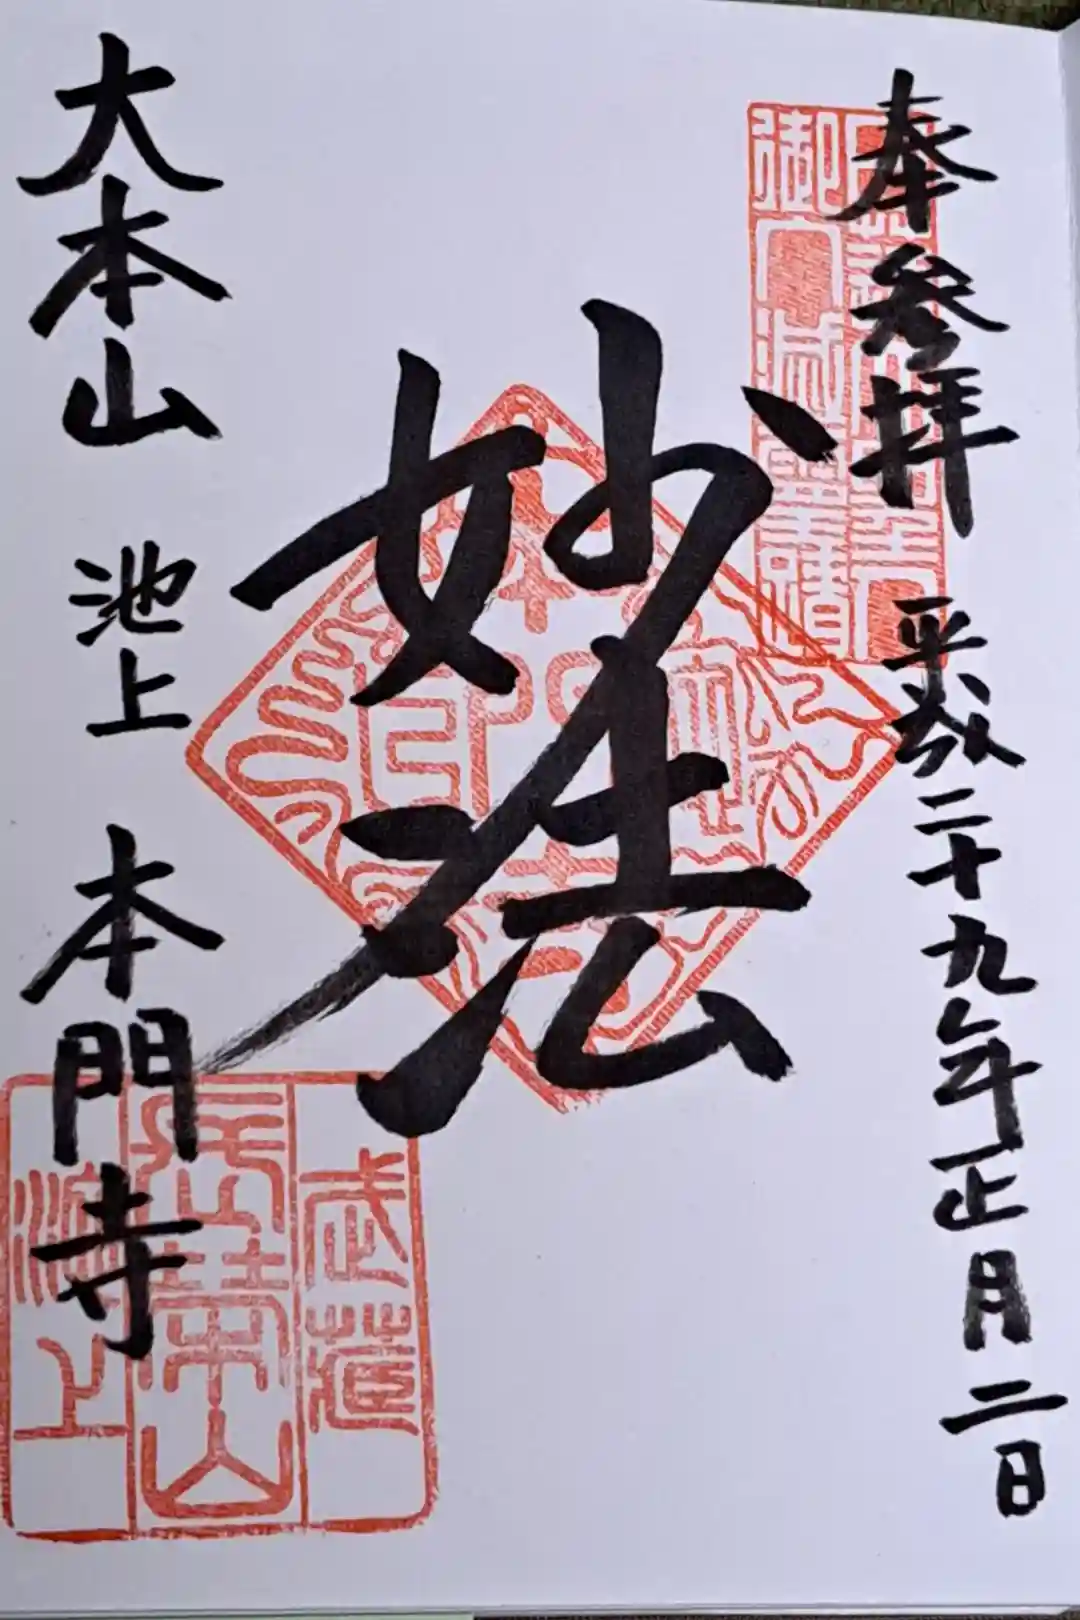 奉参拝 平成二十九年正月二日
妙法
大本山 池上 本門寺
武蔵
長栄山
池上